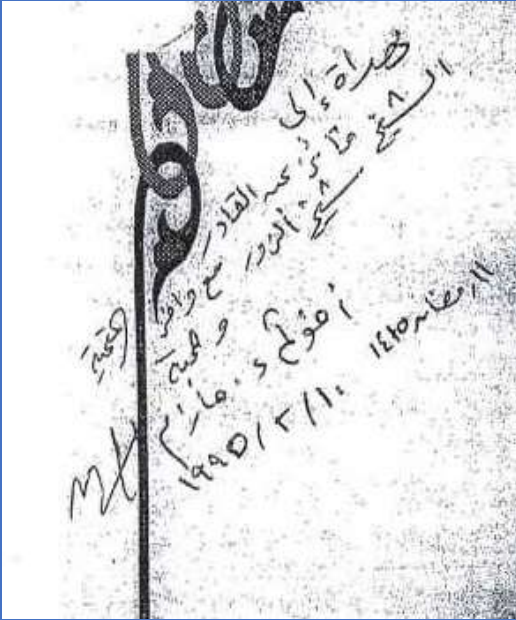 مهداة إلى
الشيخ فائز عبد القادر
شيخ الزور مع وافر التحية
و محبة
أخوكم د.
١٩٩٥/٢/١٠
١١ رمضان ١٤١٥